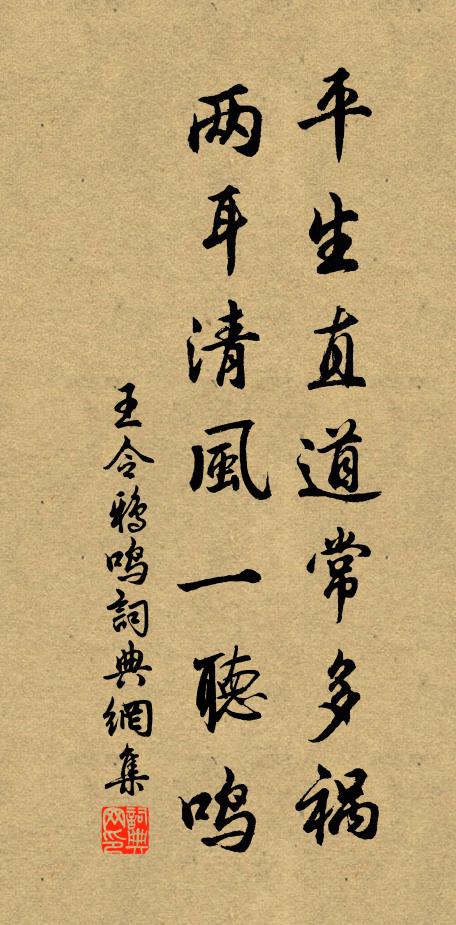 平生直道常多祸
两耳清風一聴鸣
王令鴉鸣詞典網集
詞典网印